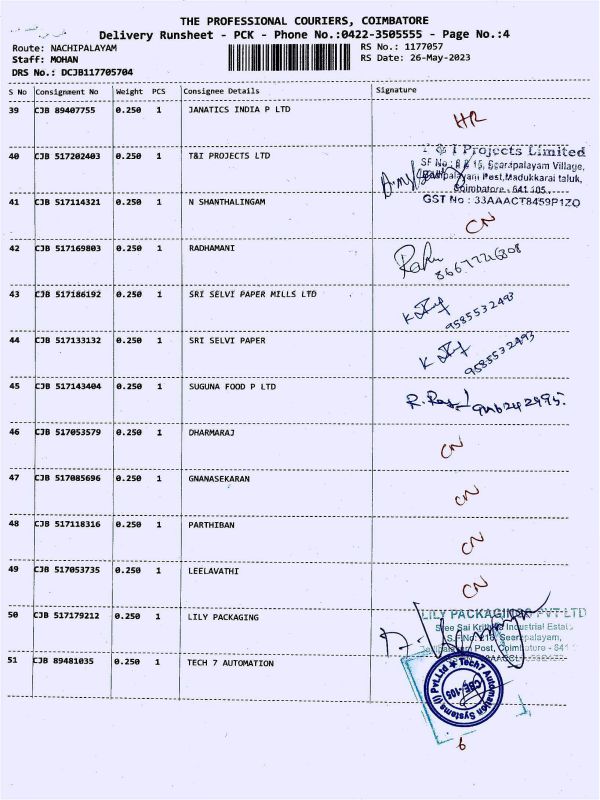 THE PROFESSIONAL COURIERS, COIMBATORE
Delivery Runsheet - PCK - Phone No.:0422-3505555 - Page No.:4
Route: NACHIPALAYAM
RS No.: 1177057
Staff: MOHAN
RS Date: 26-May-2023
DRS No.: DCJB117705704
S No Consignment No Weight PCS Consignee Details Signature
39 CJB 89407755 0.250 1 JANATICS INDIA P LTD
HR
40 CJB 517202403 0.250 1 T&I PROJECTS LTD
T & I Projects Limited
Village,
Post, Madukkarai taluk,
Coimbatore - 641 105.
GST No : 33AAACT8459P1ZO
41 CJB 517114321 0.250 1 N SHANTHALINGAM
CN
42 CJB 517169803 0.250 1 RADHAMANI
43 CJB 517186192 0.250 1 SRI SELVI PAPER MILLS LTD
9585532493
44 CJB 517133132 0.250 1 SRI SELVI PAPER
9585532493
45 CJB 517143404 0.250 1 SUGUNA FOOD P LTD
46 CJB 517053579 0.250 1 DHARMARAJ
CN
47 CJB 517085696 0.250 1 GNANASEKARAN
CN
48 CJB 517118316 0.250 1 PARTHIBAN
CN
49 CJB 517053735 0.250 1 LEELAVATHI
CN
50 CJB 517179212 0.250 1 LILY PACKAGING
LILY PACKAGINGS PVT LTD
Sree Sai Industrial Estate
Post, Coimbatore - 641
51 CJB 89481035 0.250 1 TECH 7 AUTOMATION
Tech7 Automation Systems (I) Pvt.Ltd
CBE-105
6